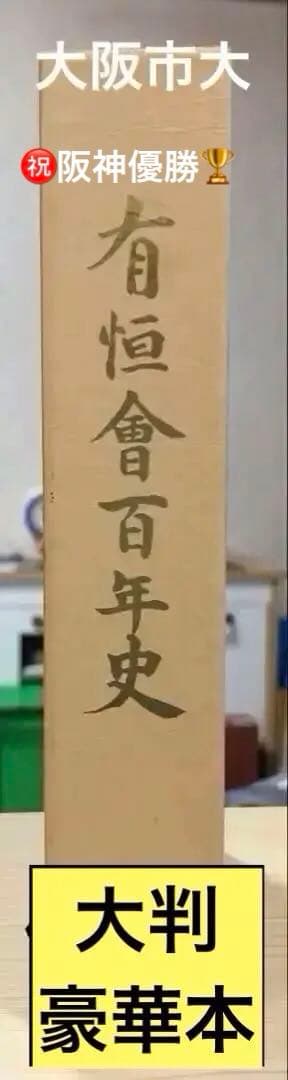 大阪市大
㊗阪神優勝🏆
有恒會百年史
大判
豪華本